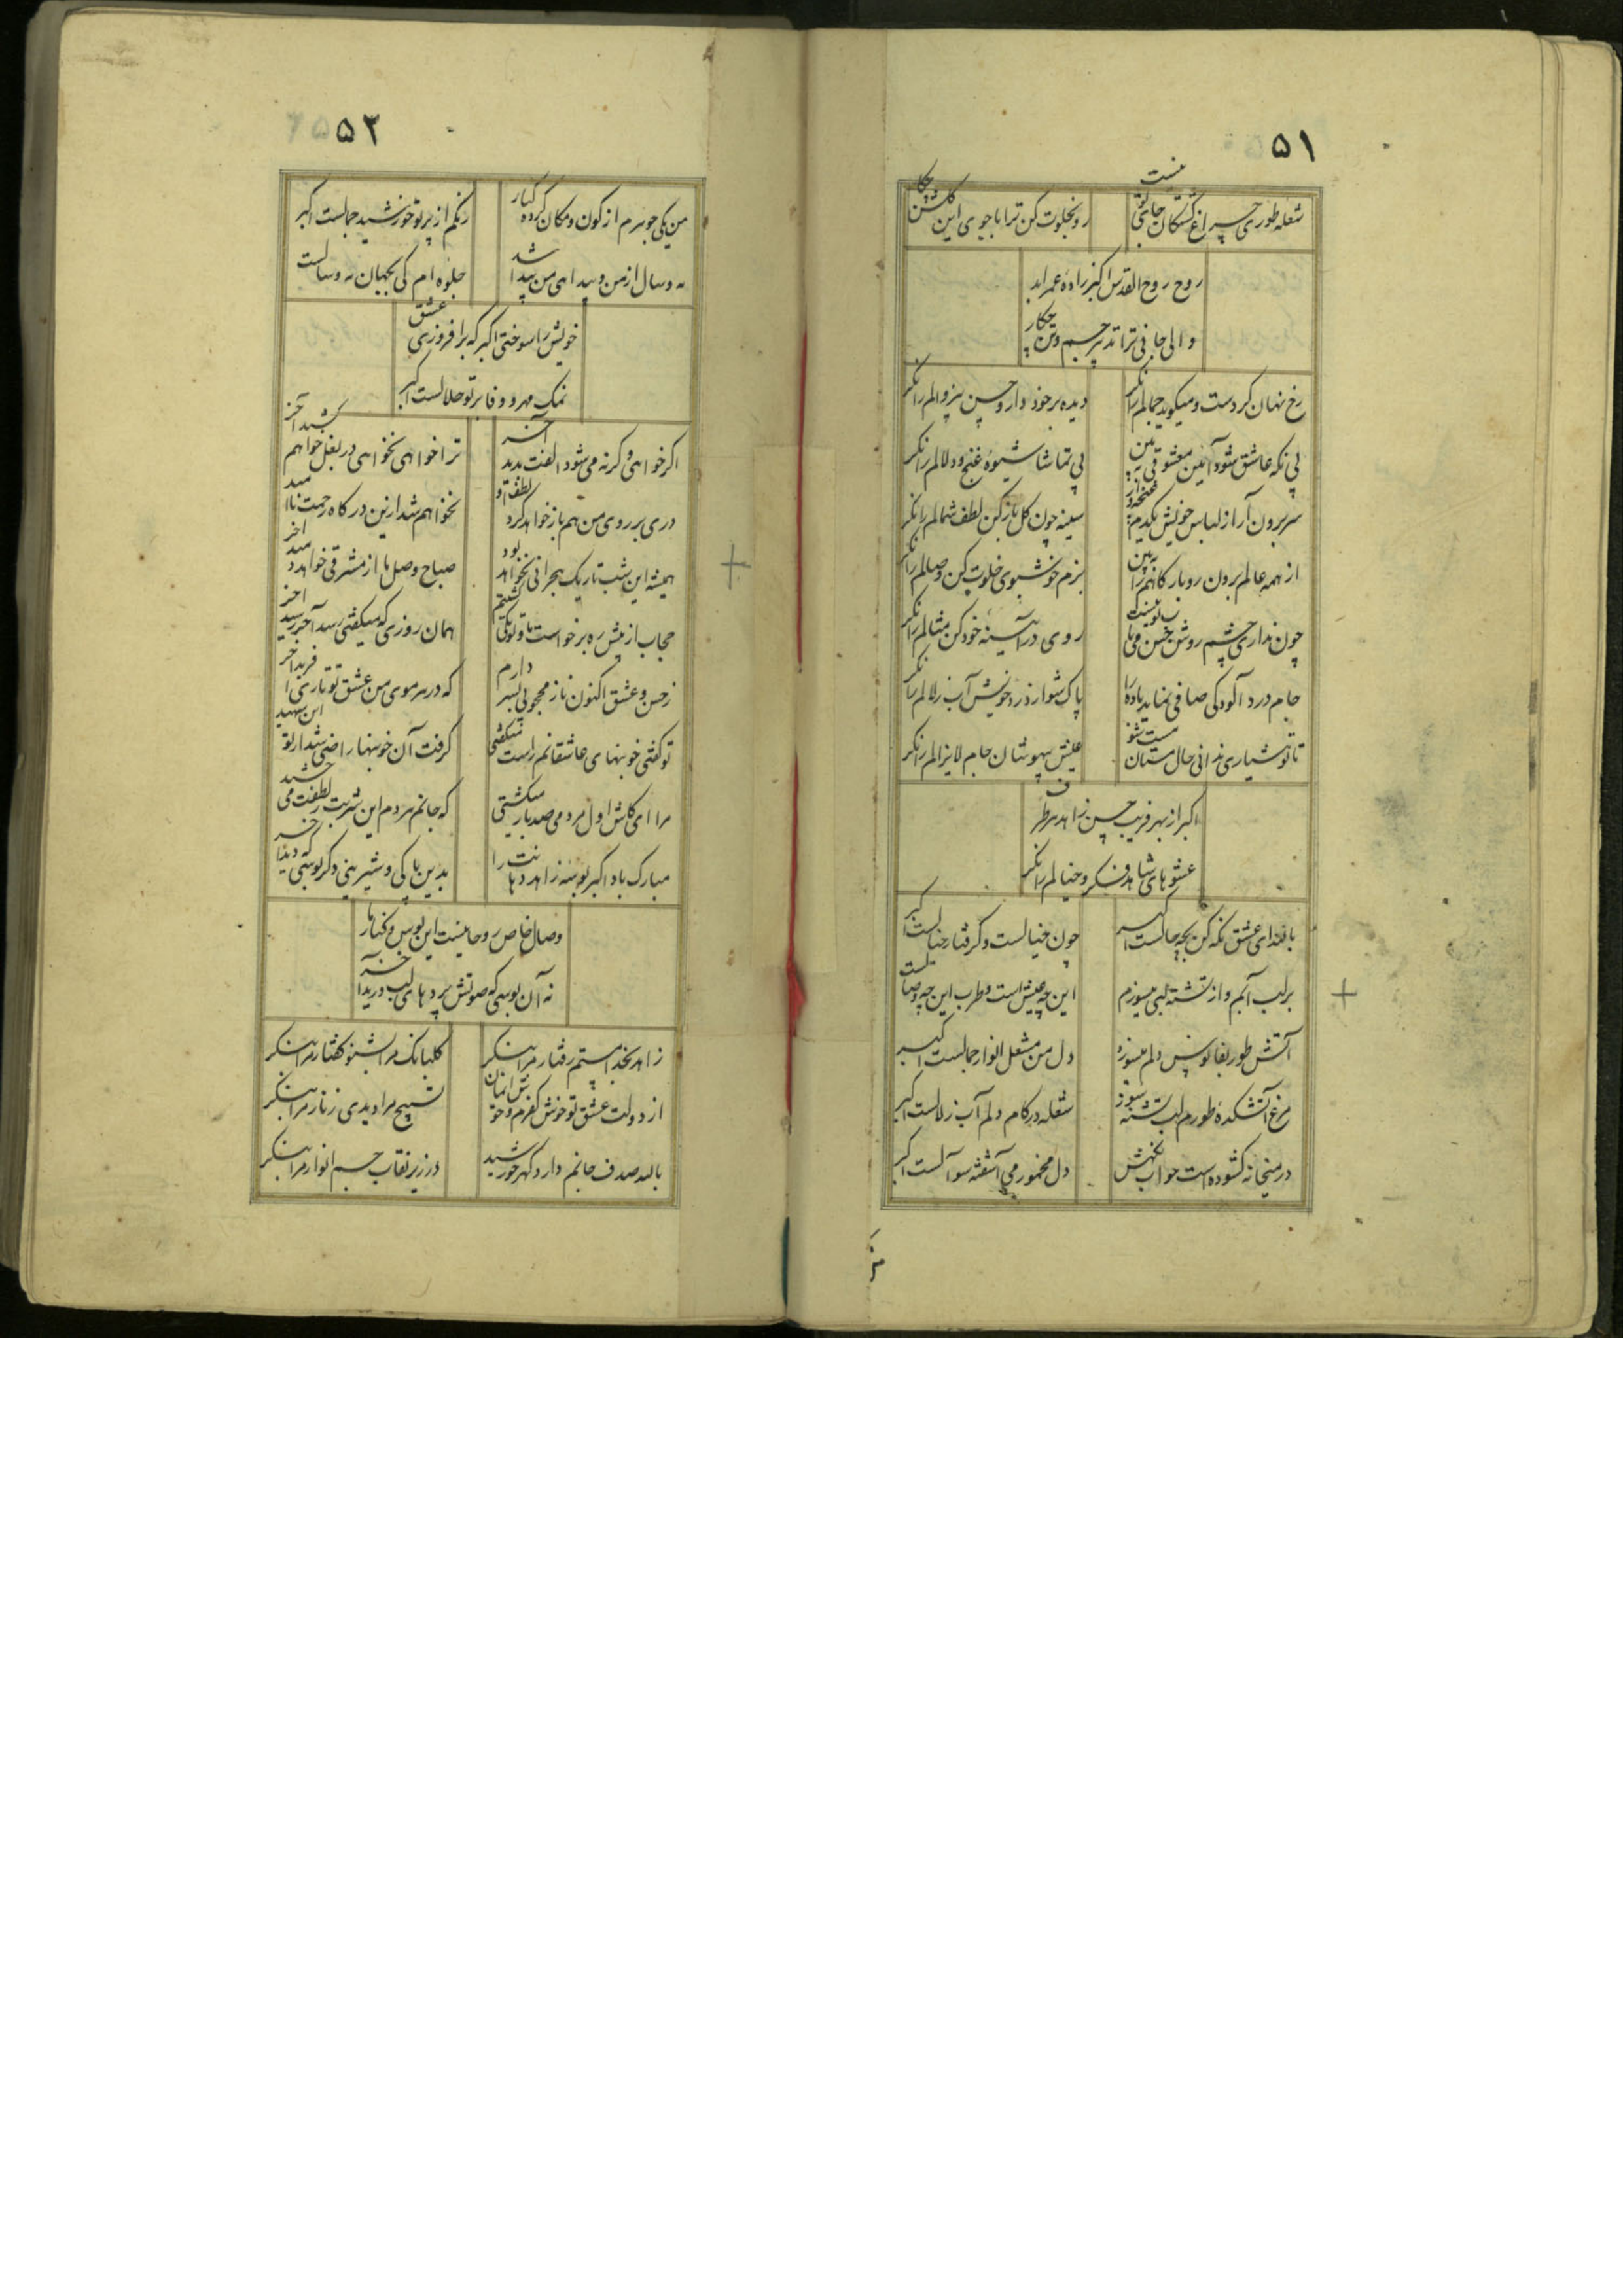 ۵۱
شعله طوری چراغ کشتگان جای تو نیست
رو بخلوت کن ترا با جوی این گلشن چکار
روح روح القدس اکبر زاده عمر ابد
والی جانی ترا تدبیر جسم و تن چکار
رخ نهان کردست و میکوید جمالم را نکر
دیده بر خود دار و حسن بیزوالم را نکر
بی نکه عاشق شو آئین معشوقی ببین
بی تماشا شیوهٔ غنج و دلالم را نکر
سر برون آر از لباس خویش یکدم غنچه وار
سینه چون کل باز کن لطف شمالم را نکر
از همه عالم برون رو بارکاهم را ببین
بزم خوشبوی خلوت کن وصالم را نکر
چون نداری چشم روشن حسن می
روی در آئینهٔ خود کن مثالم را نکر
جام درد آلودکی صافی نماید باده را
پاک شو از درد خویش آب زلالم را نکر
تا تو هشیاری ندانی حال مستان مست شو
عیش بیهوشان جام لایزالم را نکر
اکبر از بهر فریب حسن زاهد برطرف
عشوهای شاهد فکر و خیالم را نکر
با فنای عشق نکه کن بچه حالست اکبر
چون خیالست و کرفتار خیالست اکبر
بر لب آبم و از تشنه لبی میسوزم
این چه عیش است و طرب این چه وصالست
آتش طور بفانوس دلم میسوزد
دل من مشعل انوار جمالست اکبر
مرغ آتشکدهٔ طورم لب تشنه بسوز
شعله در کام دلم آب زلالست اکبر
در میخانه کشوده است جواب
دل مخمور می آشفته سوآلست اکبر
۵۲
من یکی جوهرم از کون و مکان کرده کنار
رنکم از پرتو خورشید جمالست اکبر
مه و سال از من و پیداهی من پیدا شد
جلوه ام کی بجهان مه و سالست
خویش را سوختی اکبر که برافروزی عشق
نمک مهر و وفا بر تو حلالست اکبر
اکر خواهی و کرنه می شود الفت پدید آخر
ترا خواهی نخواهی در بغل خواهم کشید آخر
دری بر روی من هم باز خواهد کرد لطف او
نخواهم شد ازین درکاه رحمت نا امید آخر
همیشه این شب تاریک هجرانی نخواهد بود
صباح وصل ما از مشرقی خواهد دمید آخر
حجاب از پیش ره برخواست تا و تو یکی کشتیم
همان روزی که میکفتی رسد آخر رسید آخر
ز حسن و عشق اکنون ناز محبوبی بسر دارم
که در هر موی من عشق تو نازی آفرید آخر
تو کفتی خونبهای عاشقانم راست میکفتی
کرفت آن خونبها راضی شد از تو این شهید
مرا ای کاش اول مردمی صد بار میکشتی
که جانم هر دم این شربت ز لطفت می چشید
مبارک باد اکبر بوسه زاهد دهانت را
بدین پاکی و شیرینی دکر بوسی که دید آخر
وصال خاص روحانیست این بوس و کنار ما
نه آن بوسی که صوتش پردهای لب درید آخر
زاهد بخدا مستم رفتار مرا بنکر
کلبانک مرا بشنو کفتار مرا بنکر
از دولت عشق تو خوش کفرم و خوش ایمان
تسبیح مرا دیدی زنار مرا بنکر
بالله صدف جانم دارد کهر خورشید
در زیر نقاب جسم انوار مرا بنکر